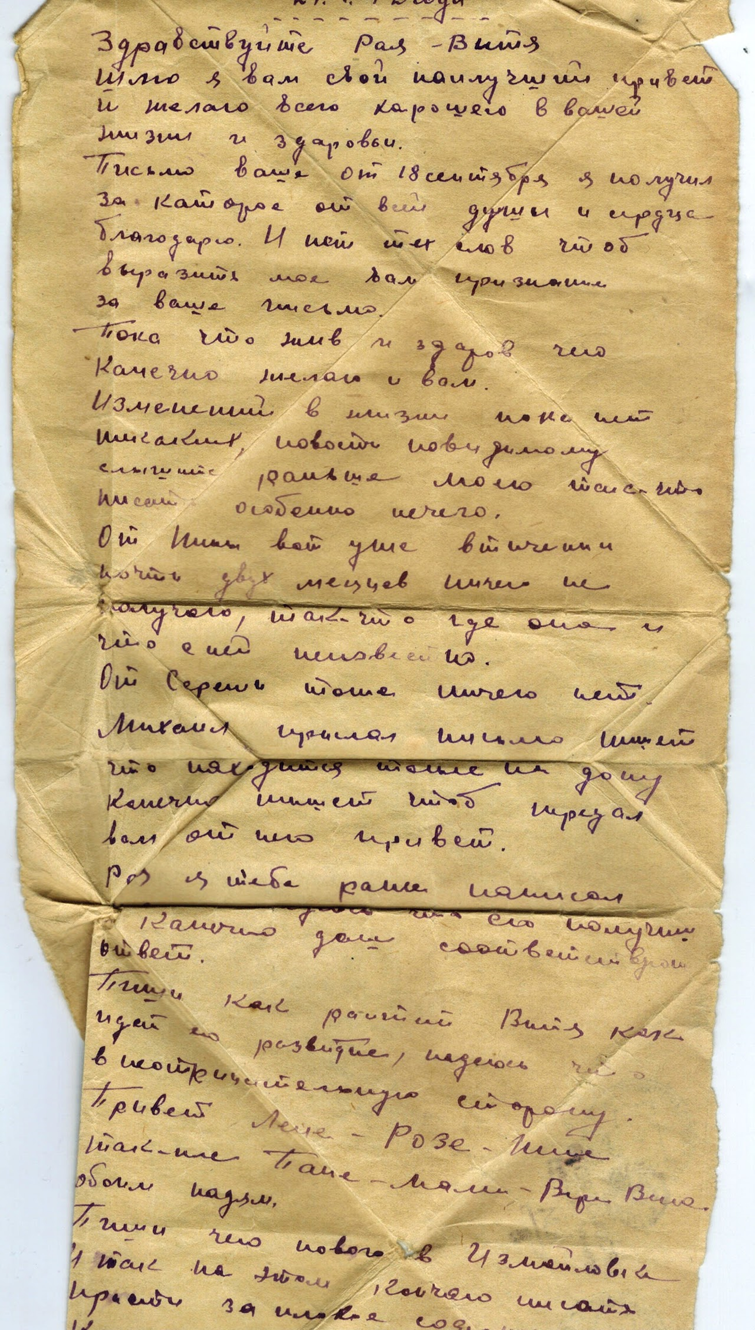 Здравствуйте Рая - Витя
Шлю я вам свой наилучший привет
и желаю всего харошего в вашей
жизни и здаровьи.
Письмо ваше от 18 сентября я получил
за каторое от всей души и сердца
благодарю. И нет тех слов чтоб
выразить мое вам признание
за ваше письмо.
Пока что жив и здаров чего
Канечно желаю и вам.
Изменений в жизни пока нет
никаких, новости повидимому
слышите раньше моего так-что
писать особенно нечего.
От Нины вот уже втичении
почти двух месяцев ничего не
получаю, так-что где она и
что с ней неизвестно.
От Сережи тоже ничего нет
Михаил прислал письмо пишет
что находится тоже на дому
Канечно пишет чтоб передал
вам от него привет.
Рая я тебе ранее написал
что его получиш
Канечно даш соответствующий
ответ.
Пиши как растит Витя как
идет его развитие, надеюсь что
в неотрицательную сторону.
Привет Лене - Розе - Нине
так-же Папе - Маме - Вере
обоим надям.
Пиши чего нового в Измайловке
И так на этом кончаю писать
прасти за плохое